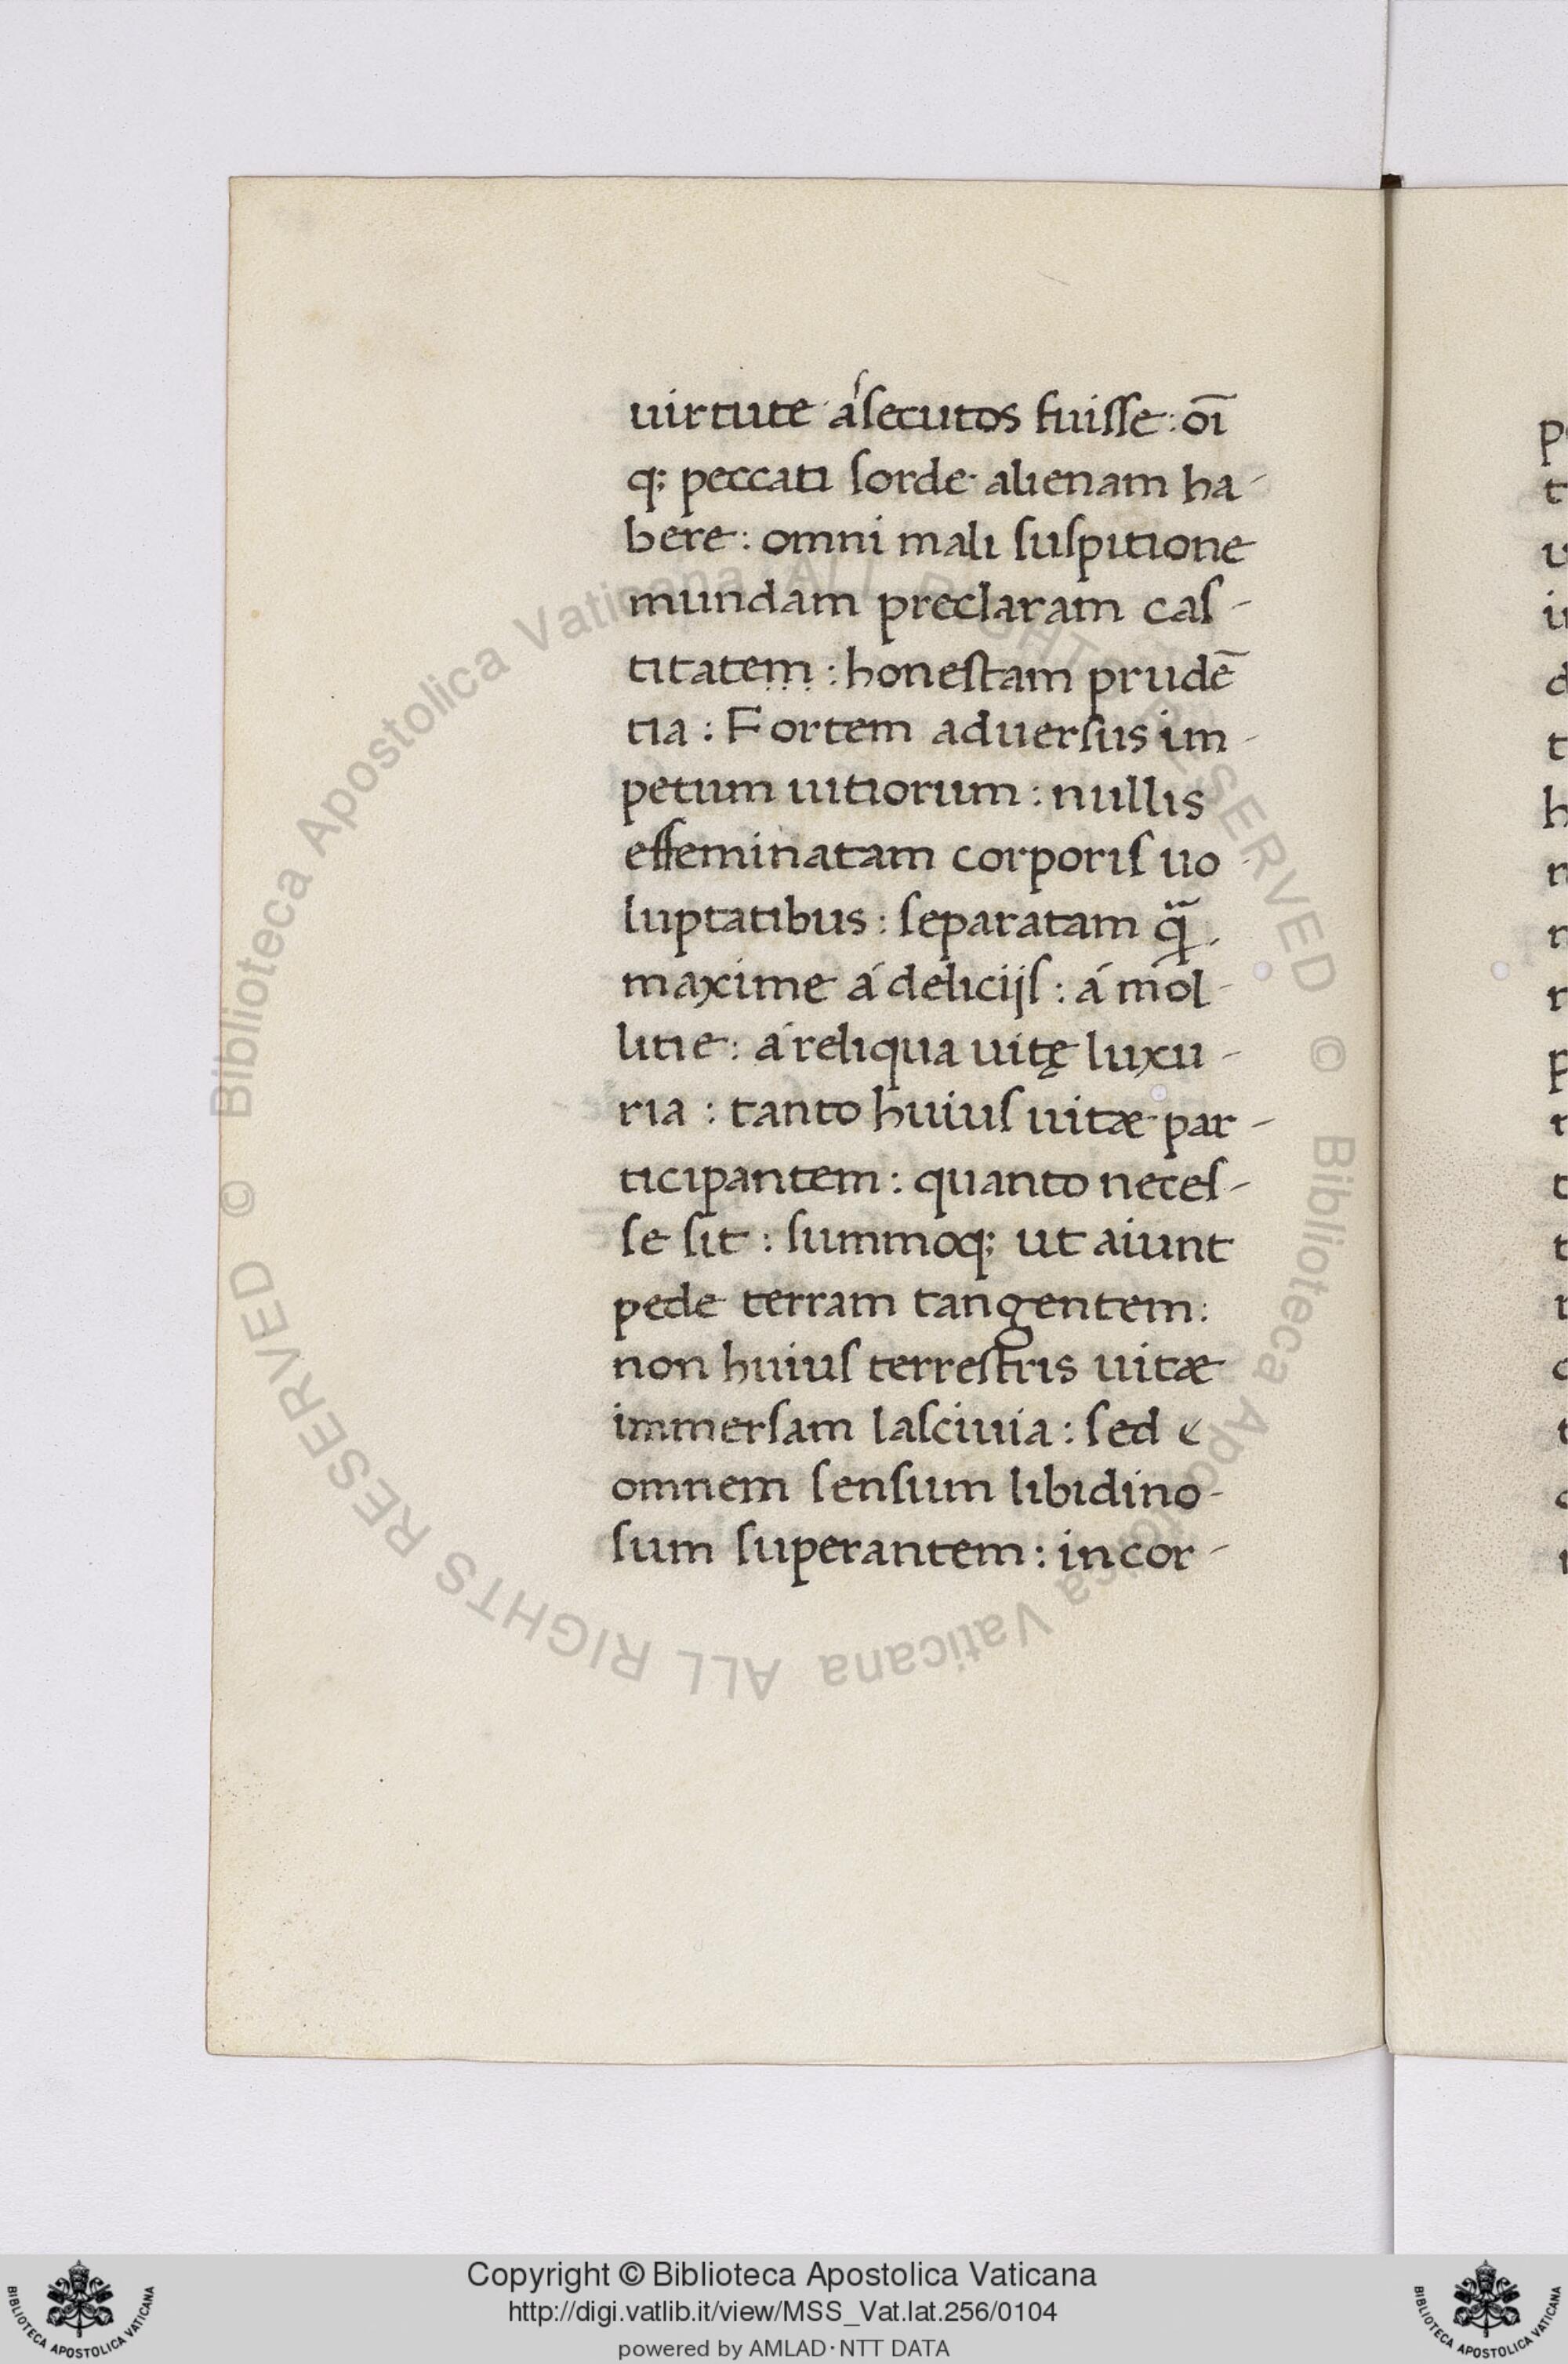 uirtute aſsecutos fuiſſe: oı̄
q; peccati ſorde alienam ha-
bere: omni mali ſuſpitione
mundam preclaram caſ-
titatem: honeſtam prudē
tia: Fortem aduerſus im-
petum uitiorum: nullis
effeminatam corporiſ uo-
luptatibus: ſeparatam q̃
maxime á deliciiſ: á mol-
litie: á reliqua uitę luxu-
ria: tanto huiuſ uitæ par-
ticipantem: quanto neceſ-
ſe ſit: ſummoq; ut aiunt
pede terram tangentem:
non huiuſ terreſtris uitæ
immerſam laſciuia: ſed
omnem ſenſum libidino-
ſum ſuperantem: in cor-
© Biblioteca Apostolica Vaticana ALL RIGHTS RESERVED
© Biblioteca Apostolica Vaticana ALL RIGHTS RESERVED
Copyright © Biblioteca Apostolica Vaticana
http://digi.vatlib.it/view/MSS_Vat.lat.256/0104
powered by AMLAD·NTT DATA
BIBLIOTECA APOSTOLICA VATICANA
BIBLIOTECA APOSTOLICA VATICANA